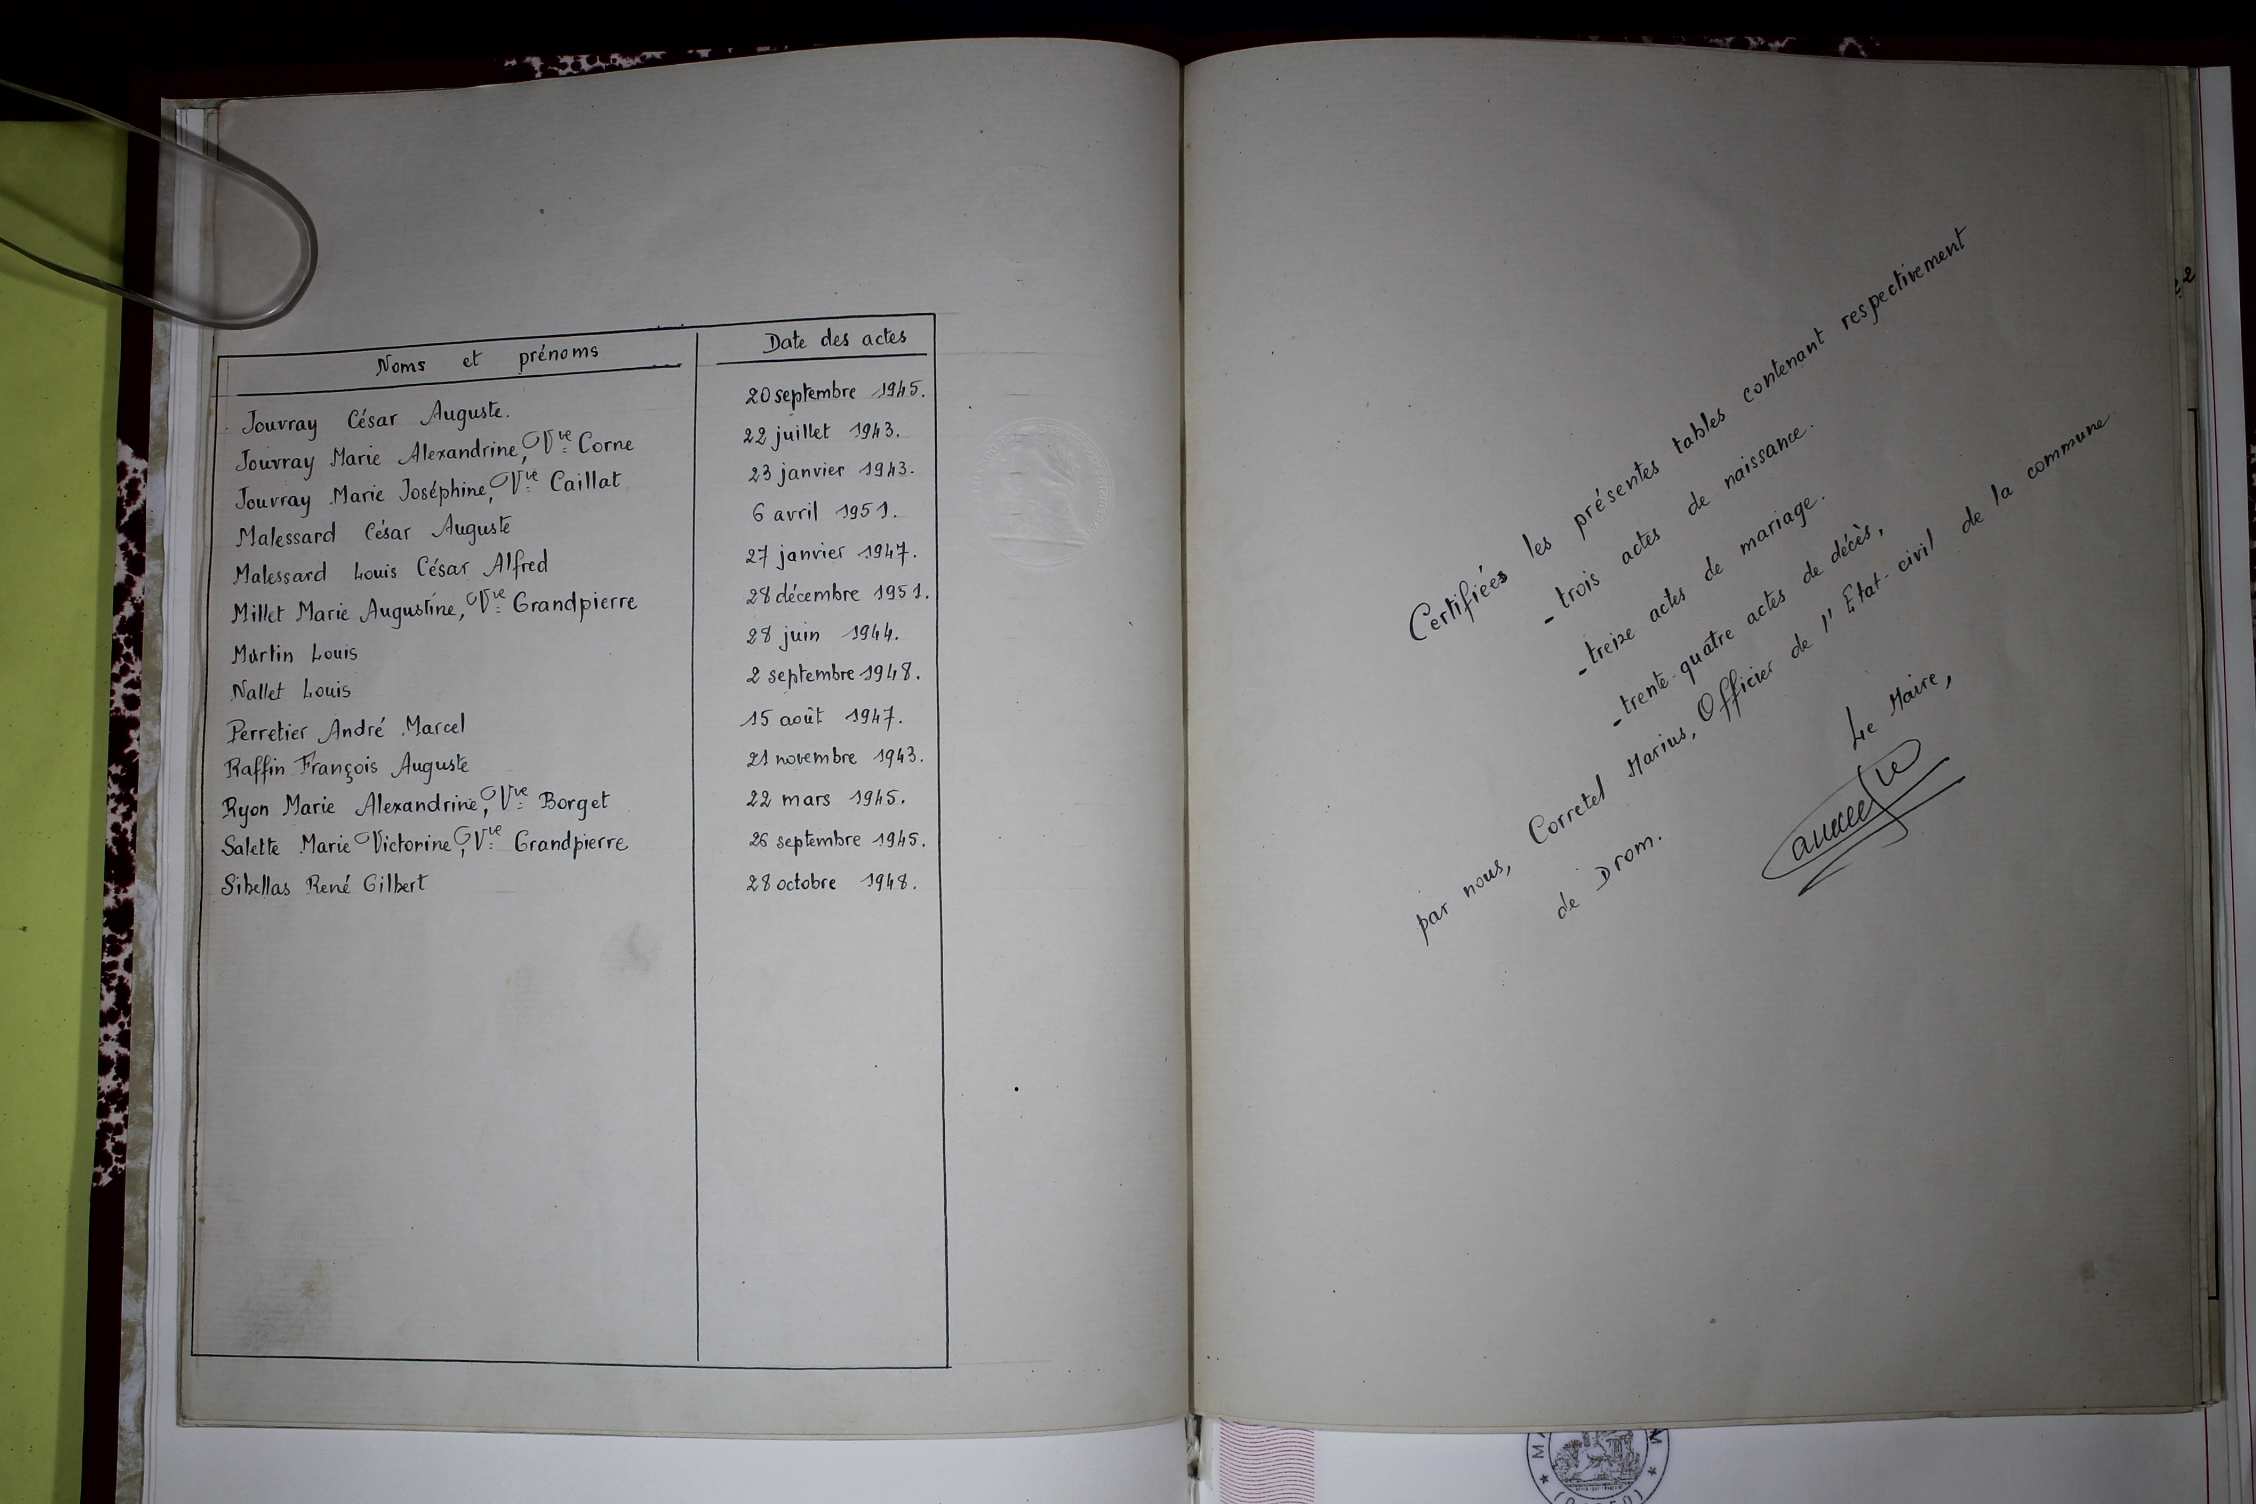 Noms et prénoms Date des actes
Jouvray César Auguste. 20 septembre 1945.
Jouvray Marie Alexandrine, Vve Corne 22 juillet 1943.
Jouvray Marie Joséphine, Vve Caillat 23 janvier 1943.
Malessard César Auguste 6 avril 1951.
Malessard Louis César Alfred 27 janvier 1947.
Millet Marie Augustine, Vve Grandpierre 28 décembre 1951.
Martin Louis 28 juin 1944.
Nallet Louis 2 septembre 1948.
Perretier André Marcel 15 août 1947.
Raffin François Auguste 21 novembre 1943.
Ryon Marie Alexandrine, Vve Borget 22 mars 1945.
Salette Marie Victorine, Vve Grandpierre 26 septembre 1945.
Sibellas René Gilbert 28 octobre 1948.
Certifiées les présentes tables contenant respectivement
- trois actes de naissance.
- treize actes de mariage.
- trente-quatre actes de décès,
par nous, Corretel Marius, Officier de l'Etat-civil de la commune
de Drom.
Le Maire,